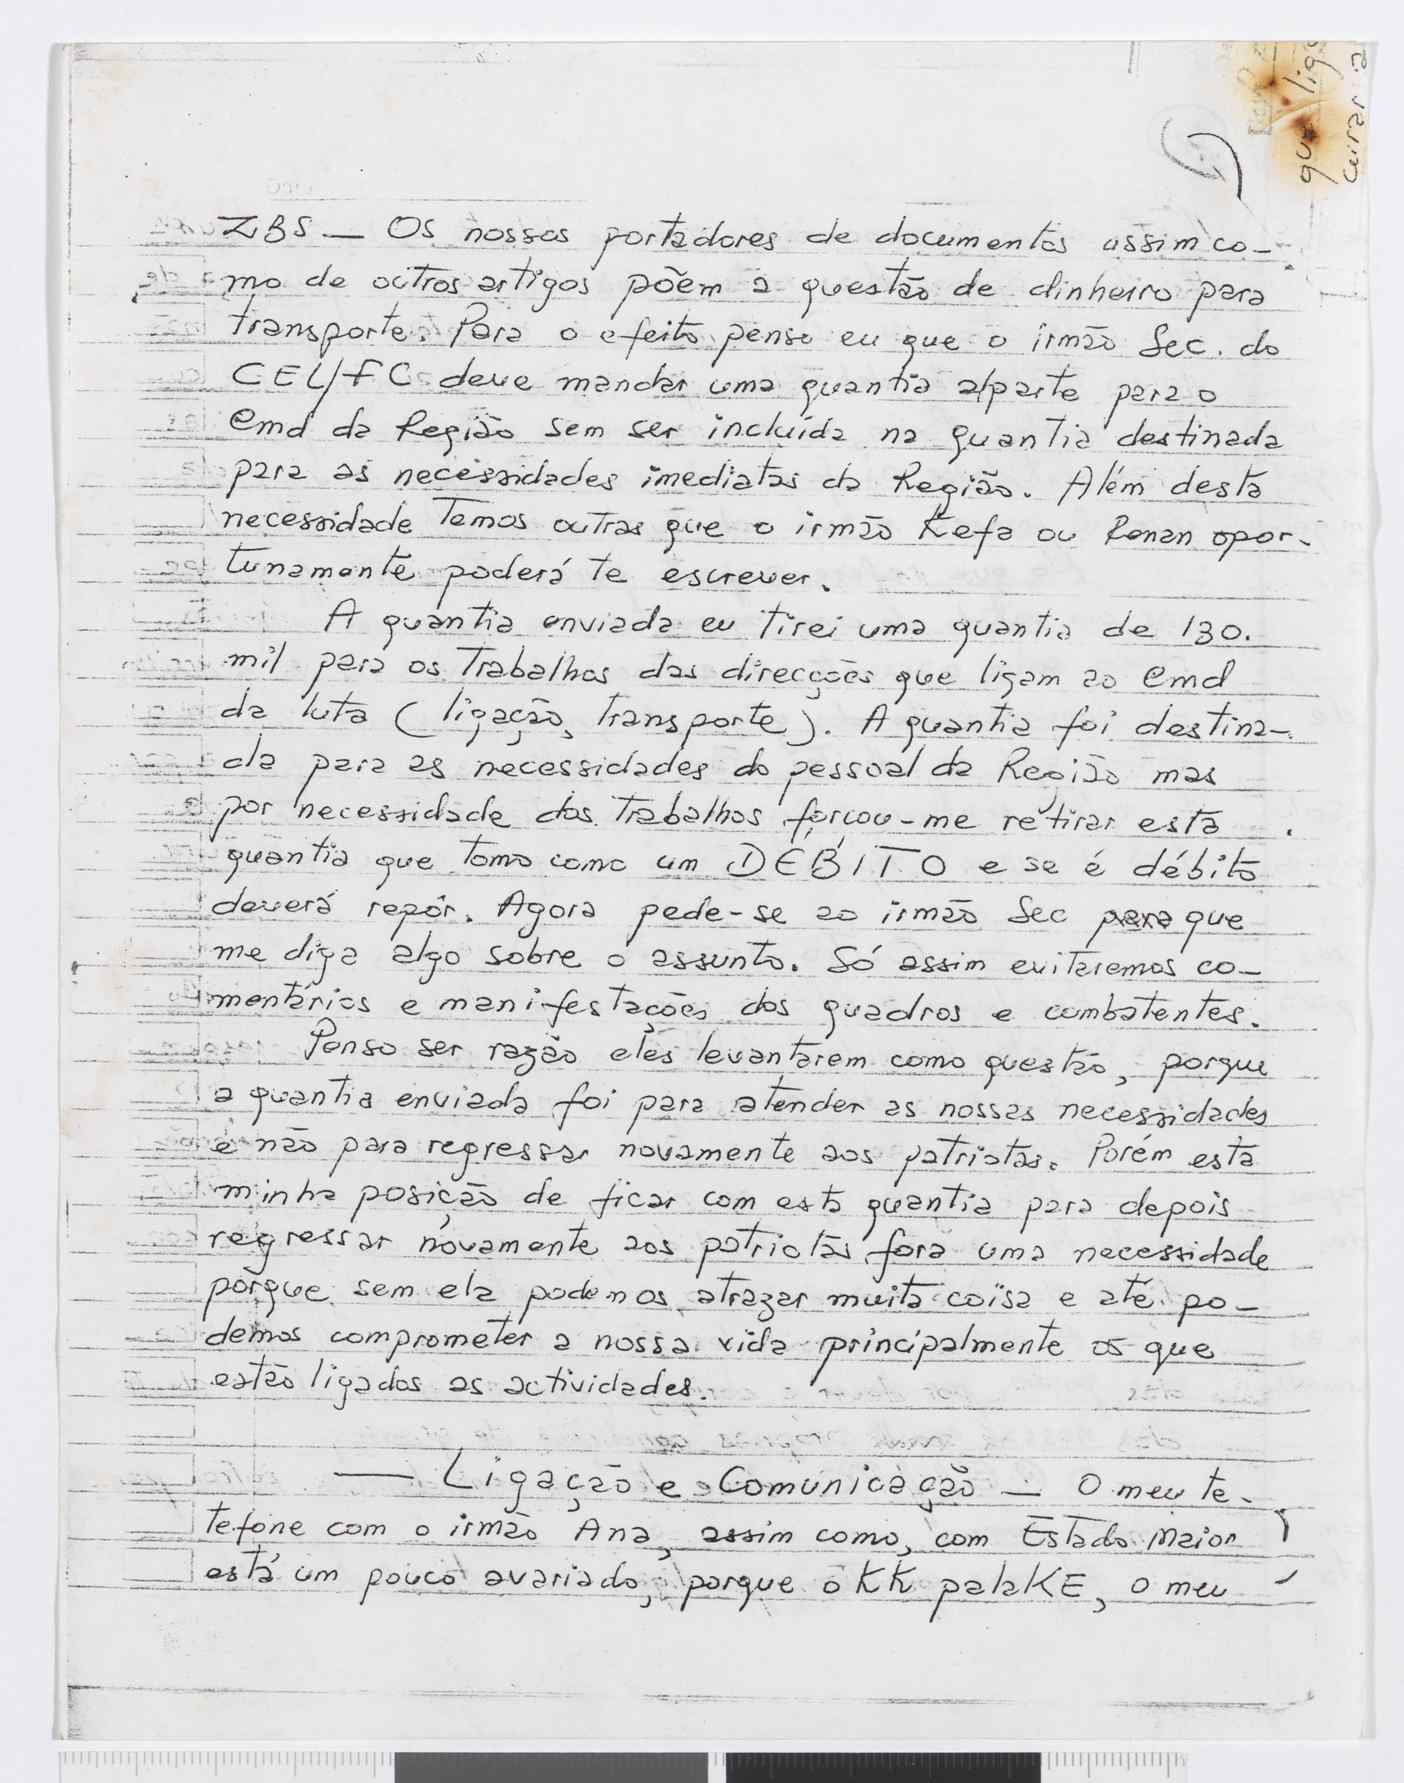 que lig
ZBS — Os nossos portadores de documentos assim co-
mo de outros artigos põem a questão de dinheiro para
transporte. Para o efeito penso eu que o irmão Sec. do
CEL/FC deve mandar uma quantia a/parte para o
Cmd da Região sem ser incluída na quantia destinada
para as necessidades imediatas da Região. Além desta
necessidade temos outras que o irmão Kefa ou Renan opor-
tunamente poderá te escrever.
A quantia enviada eu tirei uma quantia de 130.
mil para os trabalhos das direcções que ligam ao Cmd
da luta (ligação, transporte). A quantia foi destina-
da para as necessidades do pessoal da Região mas
por necessidade dos trabalhos forçou-me retirar esta
quantia que tomo como um DÉBITO e se é débito
deverá repôr. Agora pede-se ao irmão Sec para que
me diga algo sobre o assunto. Só assim evitaremos co-
mentários e manifestações dos quadros e combatentes.
Penso ser razão eles levantarem como questão, porque
a quantia enviada foi para atender as nossas necessidades
e não para regressar novamente aos patriotas. Porém esta
minha posição de ficar com esta quantia para depois
regressar novamente aos patriotas fora uma necessidade
porque sem ela podemos atrazar muita coïsa e até po-
demos comprometer a nossa vida principalmente os que
estão ligados as actividades.
— Ligação e Comunicação — O meu te-
tefone com o irmão Ana, assim como, com Estado Maior
está um pouco avariado, porque o KK palaKE, o meu